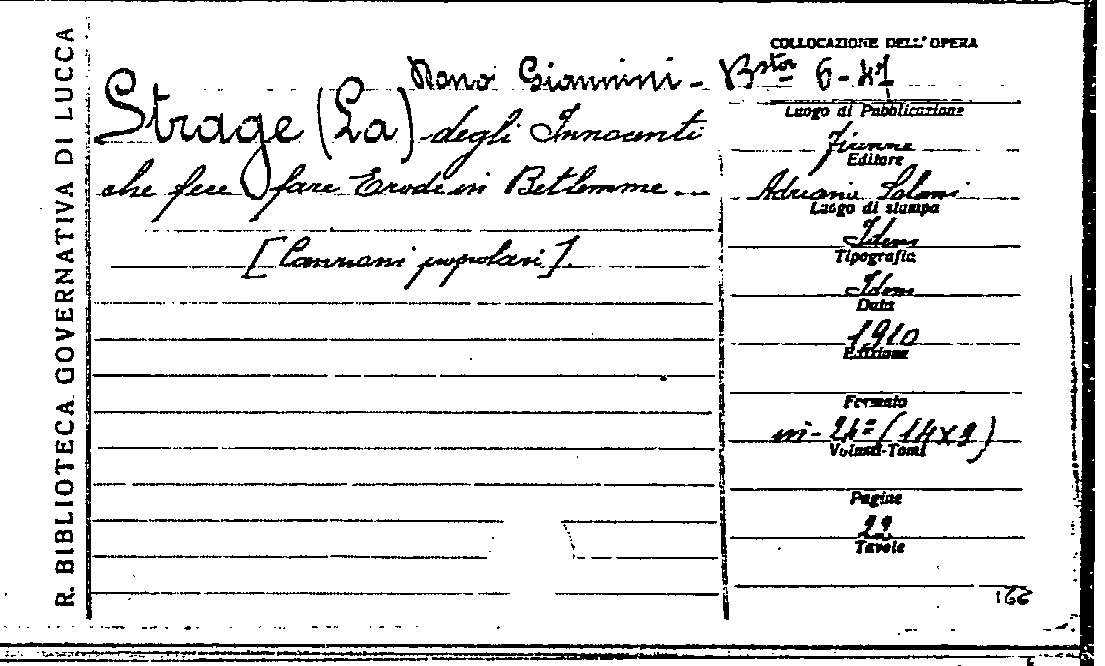 R. BIBLIOTECA GOVERNATIVA DI LUCCA
COLLOCAZIONE DELL'OPERA
Giannini - Bstor 6-47
Strage (La) degli Innocenti
che fece fare Erode in Betlemme...
[Canzoni popolari].
Luogo di Pubblicazione
Firenze
Editore
Adriano Salani
Luogo di stampa
Idem
Tipografia
Idem
Data
1910
Edizione
Formato
in-24° (14x9)
Volumi-Tomi
Pagine
22
Tavole